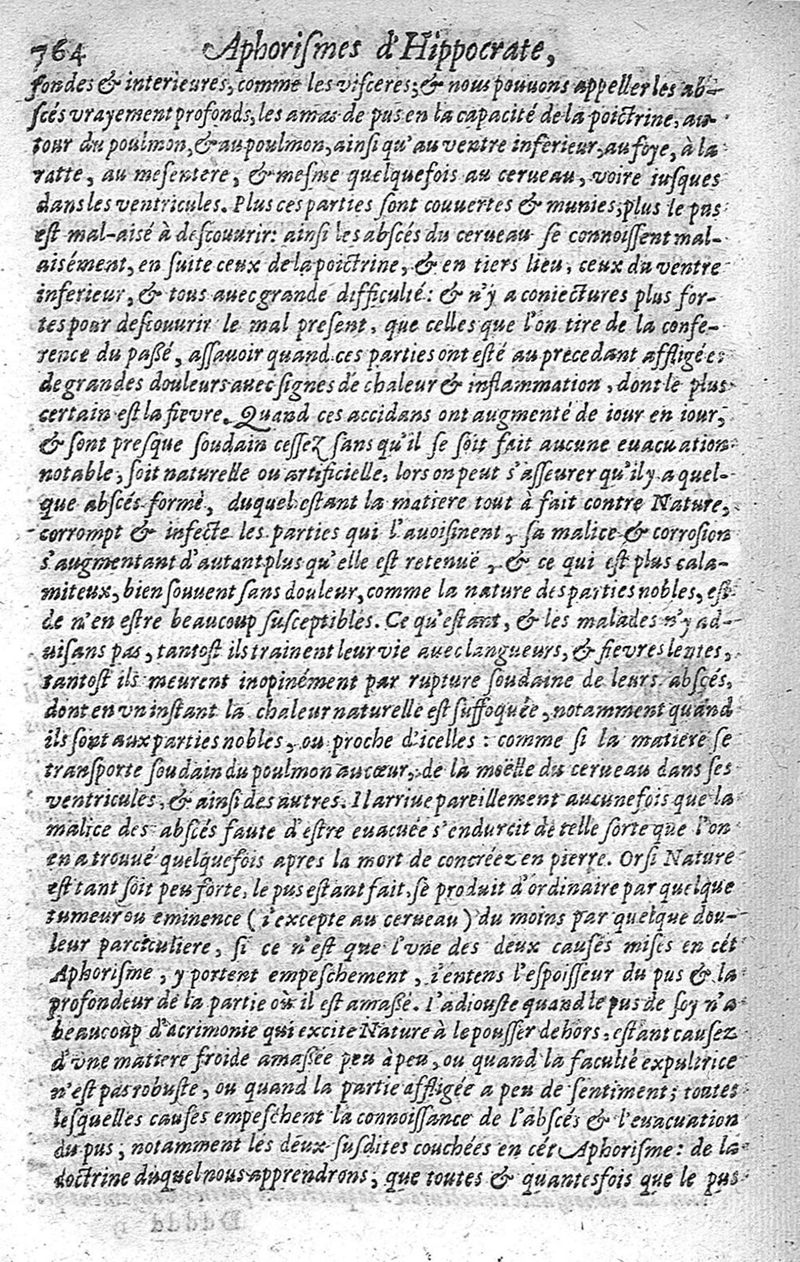 764 Aphorismes d'Hippocrate,
fondes & interieures, comme les visceres; & nous pouuons appeller les ab-
scés vrayement profonds, les amas de pus en la capacité de la poictrine, au-
tour du poulmon, & au poulmon, ainsi qu'au ventre inferieur, au foye, à la
ratte, au mesentere, & mesme quelquefois au cerueau, voire iusques
dans les ventricules. Plus ces parties sont couuertes & munies, plus le pus
est mal-aisé à descouurir: ainsi les abscés du cerueau se connoissent mal-
aisément, en suite ceux de la poictrine, & en tiers lieu, ceux du ventre
inferieur, & tous auec grande difficulté: & n'y a coniectures plus for-
tes pour descouurir le mal present, que celles que l'on tire de la confe-
rence du passé, assauoir quand ces parties ont esté au precedant affligées
de grandes douleurs auec signes de chaleur & inflammation, dont le plus
certain est la fievre. Quand ces accidans ont augmenté de iour en iour,
& sont presque soudain cessez sans qu'il se soit fait aucune euacuation
notable, soit naturelle ou artificielle, lors on peut s'asseurer qu'il y a quel-
que abscés formé, duquel estant la matiere tout à fait contre Nature,
corrompt & infecte les parties qui l'auoisinent, sa malice & corrosion
s'augmentant d'autant plus qu'elle est retenuë, & ce qui est plus cala-
miteux, bien souuent sans douleur, comme la nature des parties nobles, est
de n'en estre beaucoup susceptibles. Ce qu'estant, & les malades n'y ad-
uisans pas, tantost ils trainent leur vie auec langueurs, & fievres lentes,
tantost ils meurent inopinément par rupture soudaine de leurs abscés,
dont en vn instant la chaleur naturelle est suffoquée, notamment quand
ils sont aux parties nobles, ou proche d'icelles: comme si la matiere se
transporte soudain du poulmon au cœur, de la moëlle du cerueau dans ses
ventricules, & ainsi des autres. Il arriue pareillement aucunefois que la
malice des abscés faute d'estre euacuée s'endurcit de telle sorte que l'on
en a trouué quelquefois apres la mort de concréez en pierre. Or si Nature
est tant soit peu forte, le pus estant fait, se produit d'ordinaire par quelque
tumeur ou eminence (i'excepte au cerueau) du moins par quelque dou-
leur particuliere, si ce n'est que l'vne des deux causes mises en cét
Aphorisme, y portent empeschement, i'entens l'espoisseur du pus & la
profondeur de la partie où il est amassé. I'adiouste quand le pus de soy n'a
beaucoup d'acrimonie qui excite Nature à le pousser dehors, estant causez
d'vne matiere froide amassée peu à peu, ou quand la faculté expultrice
n'est pas robuste, ou quand la partie affligée a peu de sentiment; toutes
lesquelles causes empeschent la connoissance de l'abscés & l'euacuation
du pus; notamment les deux susdites couchées en cét Aphorisme: de la
doctrine duquel nous apprendrons, que toutes & quantesfois que le pus